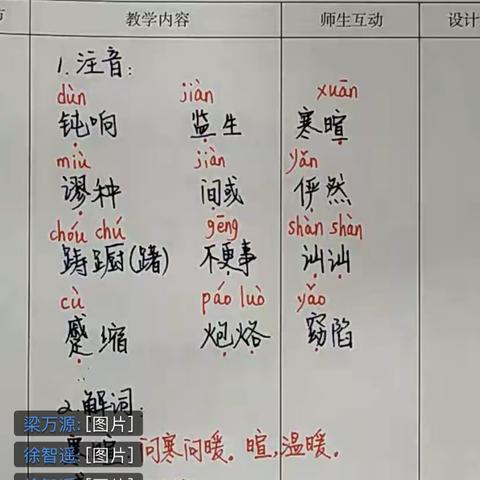 教学内容 师生互动 设计
1.注音:
dùn jiàn xuān
钝响 监生 寒暄
miù jiàn yǎn
谬种 间或 俨然
chóu chú gēng shàn shàn
踌蹰(躇) 不更事 讪讪
cù páo luò yǎo
蹙缩 炮烙 窈陷
2.解词:
梁万源:[图片]
寒暄:问寒问暖。暄,温暖。
徐智遥:[图片]